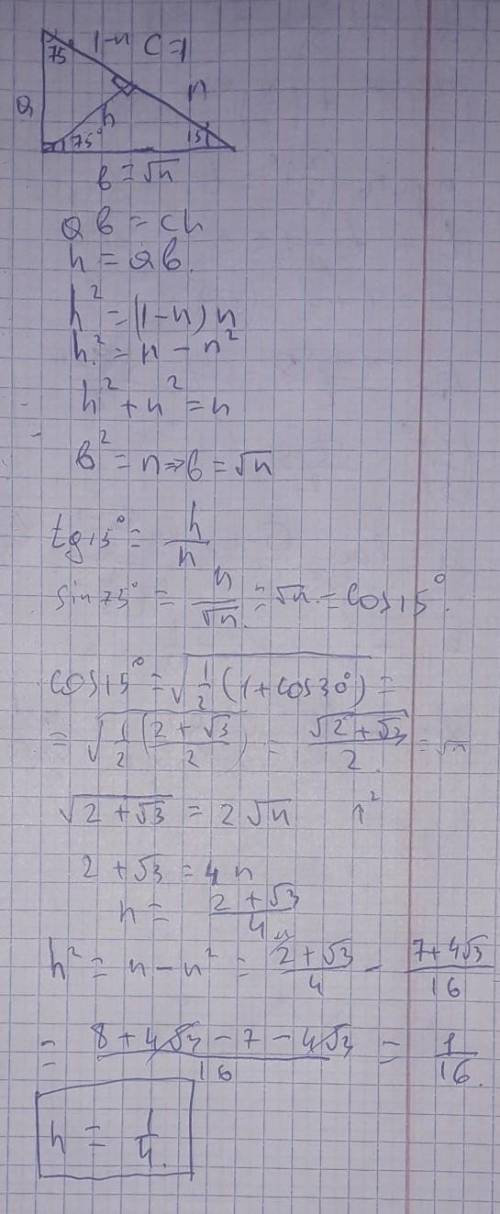 75 1-n c=1
a h n
75° 15
в = √n
aв = ch
h = aв.
h² = (1-n)n
h² = n - n²
h² + n² = n
в² = n => в = √n
tg15° = h/n
sin75° = n/√n = √n = cos15°.
cos15° = √(1/2(1+cos30°)) =
= √(1/2((2+√3)/2)) = √(2+√3)/2 = √n
√(2+√3) = 2√n ↑²
2+√3 = 4n
n = (2+√3)/4
h² = n - n² = (2+√3)/4 - (7+4√3)/16
= (8+4√3-7-4√3)/16 = 1/16.
h = 1/4.